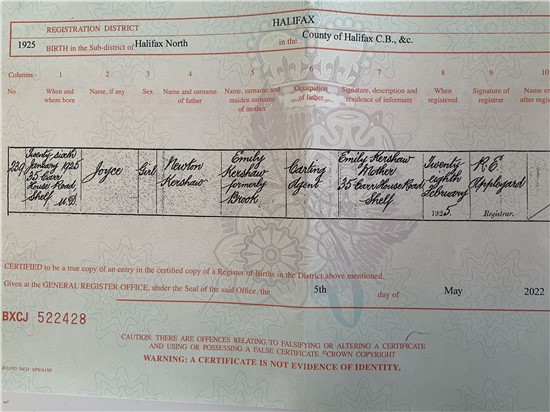 REGISTRATION DISTRICT HALIFAX
1925 BIRTH in the Sub-district of Halifax North in the County of Halifax C.B., &c.
Columns:- 1 2 3 4 5 6 7 8 9 10
No. When and where born Name, if any Sex Name and surname of father Name, surname and maiden surname of mother Occupation of father Signature, description and residence of informant When registered Signature of registrar Name after
239 Twenty sixth January 1925 35 Carr House Road, Shelf U.D. Joyce Girl Newton Kershaw Emily Kershaw formerly Brook Carting Agent Emily Kershaw Mother 35 Carr House Road, Shelf Twenty eighth February 1925. R.E. Appleyard Registrar.
CERTIFIED to be a true copy of an entry in the certified copy of a Register of Births in the District above mentioned.
Given at the GENERAL REGISTER OFFICE, under the Seal of the said Office, the 5th day of May 2022
BXCJ 522428
CAUTION: THERE ARE OFFENCES RELATING TO FALSIFYING OR ALTERING A CERTIFICATE
AND USING OR POSSESSING A FALSE CERTIFICATE ©CROWN COPYRIGHT
WARNING: A CERTIFICATE IS NOT EVIDENCE OF IDENTITY.